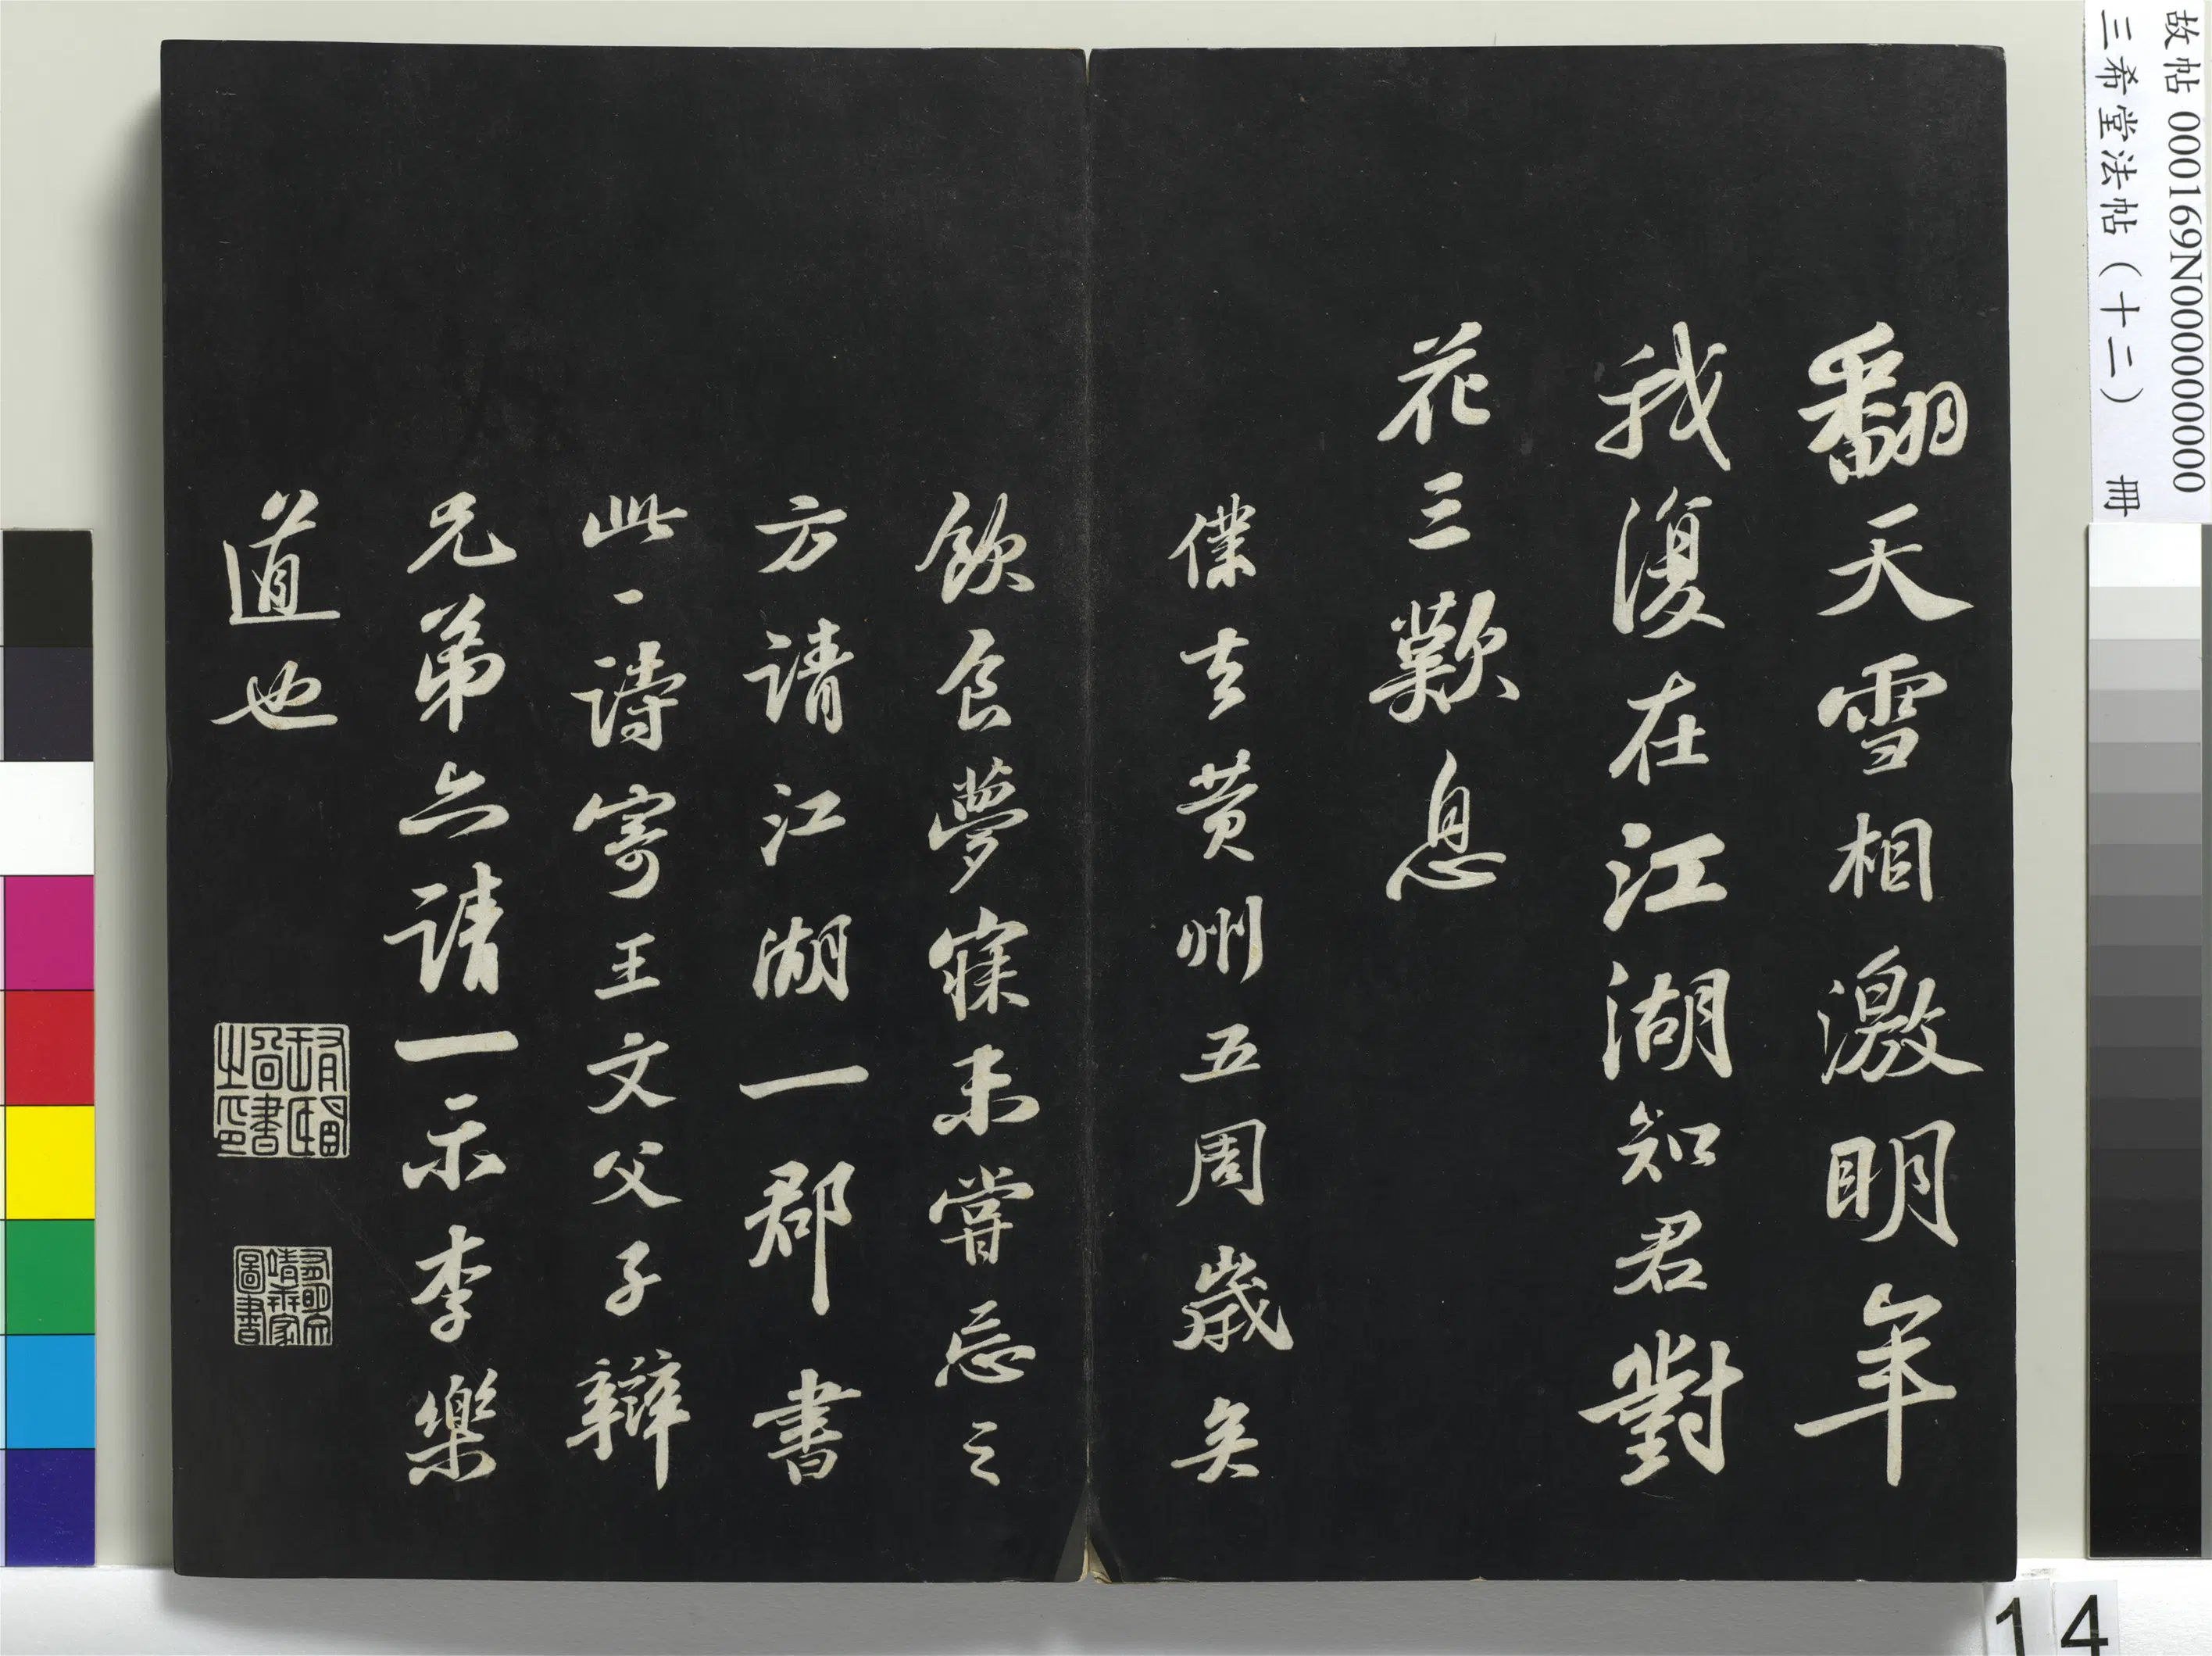 翻天雪相激明年
我復在江湖知君對
花三歎息
僕去黄州五周歲矣
飲食夢寐未嘗忘之
方請江湖一郡書
此一詩寄王文父子辯
兄弟亦請一示李樂
道也
故帖 000169N000000000
三希堂法帖(十二) 冊
14